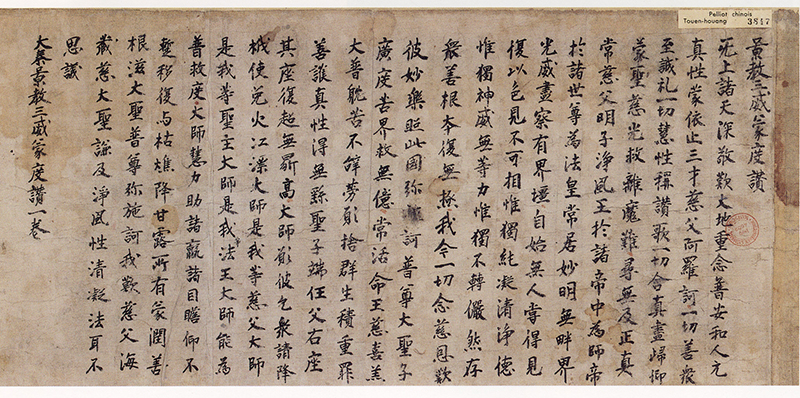 Pelliot chinois
Touen-houang 3847
景教三威蒙度讚
无上諸天深敬歎大地重念普安和人元
真性蒙依止三才慈父阿羅訶一切善衆
至誠礼一切慧性稱讚歌一切含真盡歸仰
蒙聖慈光救離魔難尋無及正真
常慈父明子淨風王於諸帝中為師帝
於諸世尊為法皇常居妙明無畔界
光威盡察有界疆自始無人嘗得見
復以色見不可相惟獨純凝清淨德
惟獨神威無等力惟獨不轉儼然存
衆善根本復無極我今一切念慈恩歎
彼妙樂照此國弥訶普尊大聖子
廣度苦界救無億常活命王慈喜羔
大普躭苦不辝勞願捨群生積重罪
善護真性得無繇聖子端任父右座
其座復超無鼎高大師願彼乞衆請降
栰使免火江漂大師是我等慈父大師
是我等聖主大師是我法王大師能為
普救度大師慧力助諸羸諸目瞻仰不
蹔移復与枯燋降甘露所有蒙潤善
根滋大聖普尊弥施訶我歎慈父海
藏慈大聖謙及淨風性清凝法耳不
思議
大秦景教三威蒙度讚一卷